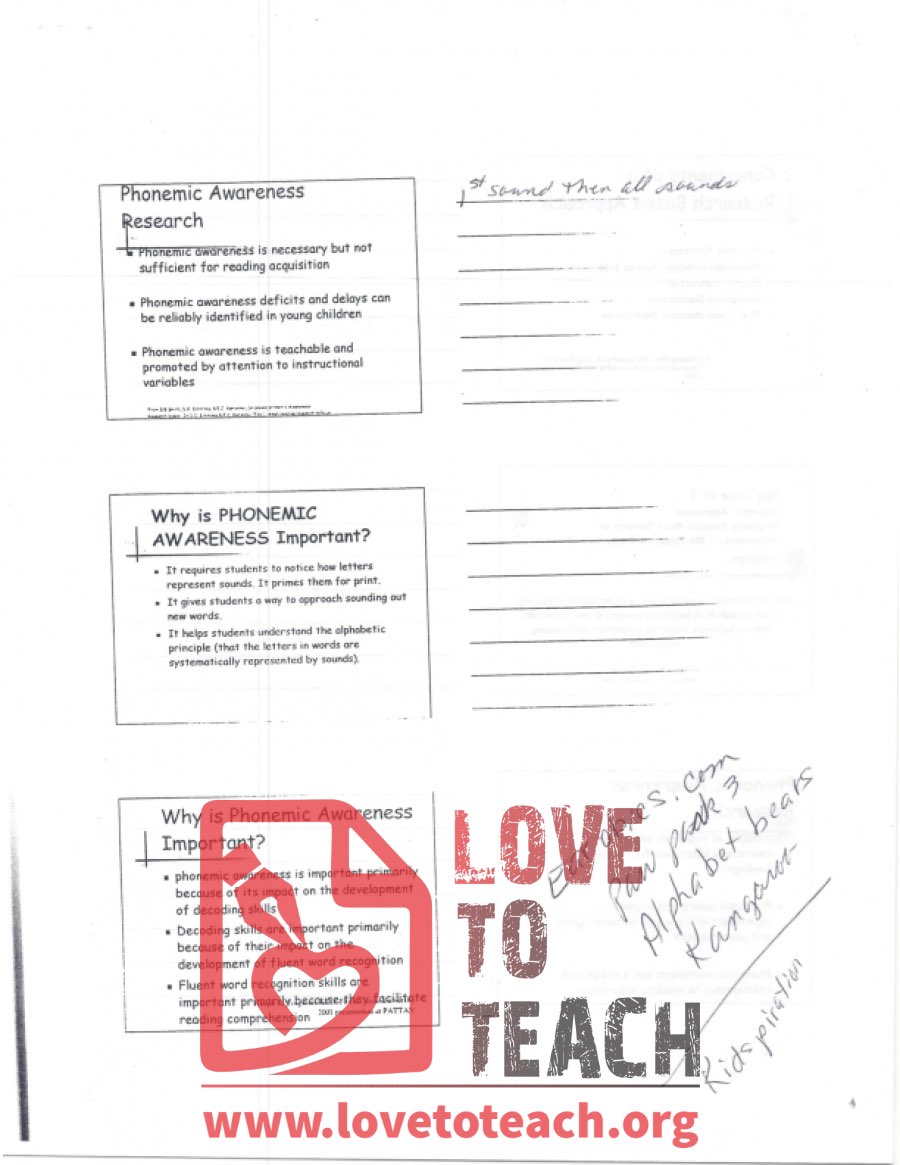 Phonemic Awareness
Research
Phonemic awareness is necessary but not
sufficient for reading acquisition
Phonemic awareness deficits and delays can
be reliably identified in young children
Phonemic awareness is teachable and
promoted by attention to instructional
variables
1st sound then all sounds
Why is PHONEMIC
AWARENESS Important?
It requires students to notice how letters
represent sounds. It primes them for print.
It gives students a way to approach sounding out
new words.
It helps students understand the alphabetic
principle (that the letters in words are
systematically represented by sounds).
Why is Phonemic Awareness
Important?
phonemic awareness is important primarily
because of its impact on the development
of decoding skills
Decoding skills are important primarily
because of their impact on the
development of fluent word recognition
Fluent word recognition skills are
important primarily because they facilitate
reading comprehension
2001 presentation at PATTAN
.com
paw park 3
Alphabet bears
Kangaroo
Kidspiration
LOVE
TO
TEACH
www.lovetoteach.org